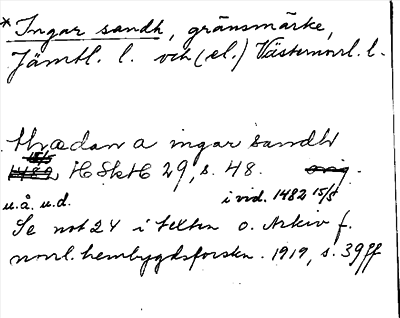 *Ingar sandh, gränsmärke,
Jämtl. l. och (el.) Västernorrl. l.
thrædan a ingar sandh
15/5
1482 HSkH 29, s. 48. orig.
u.å. u.d. i vid. 1482 15/5
Se not 24 i texten o. Arkiv f.
norrl. hembygdsforskn. 1919, s. 39 ff